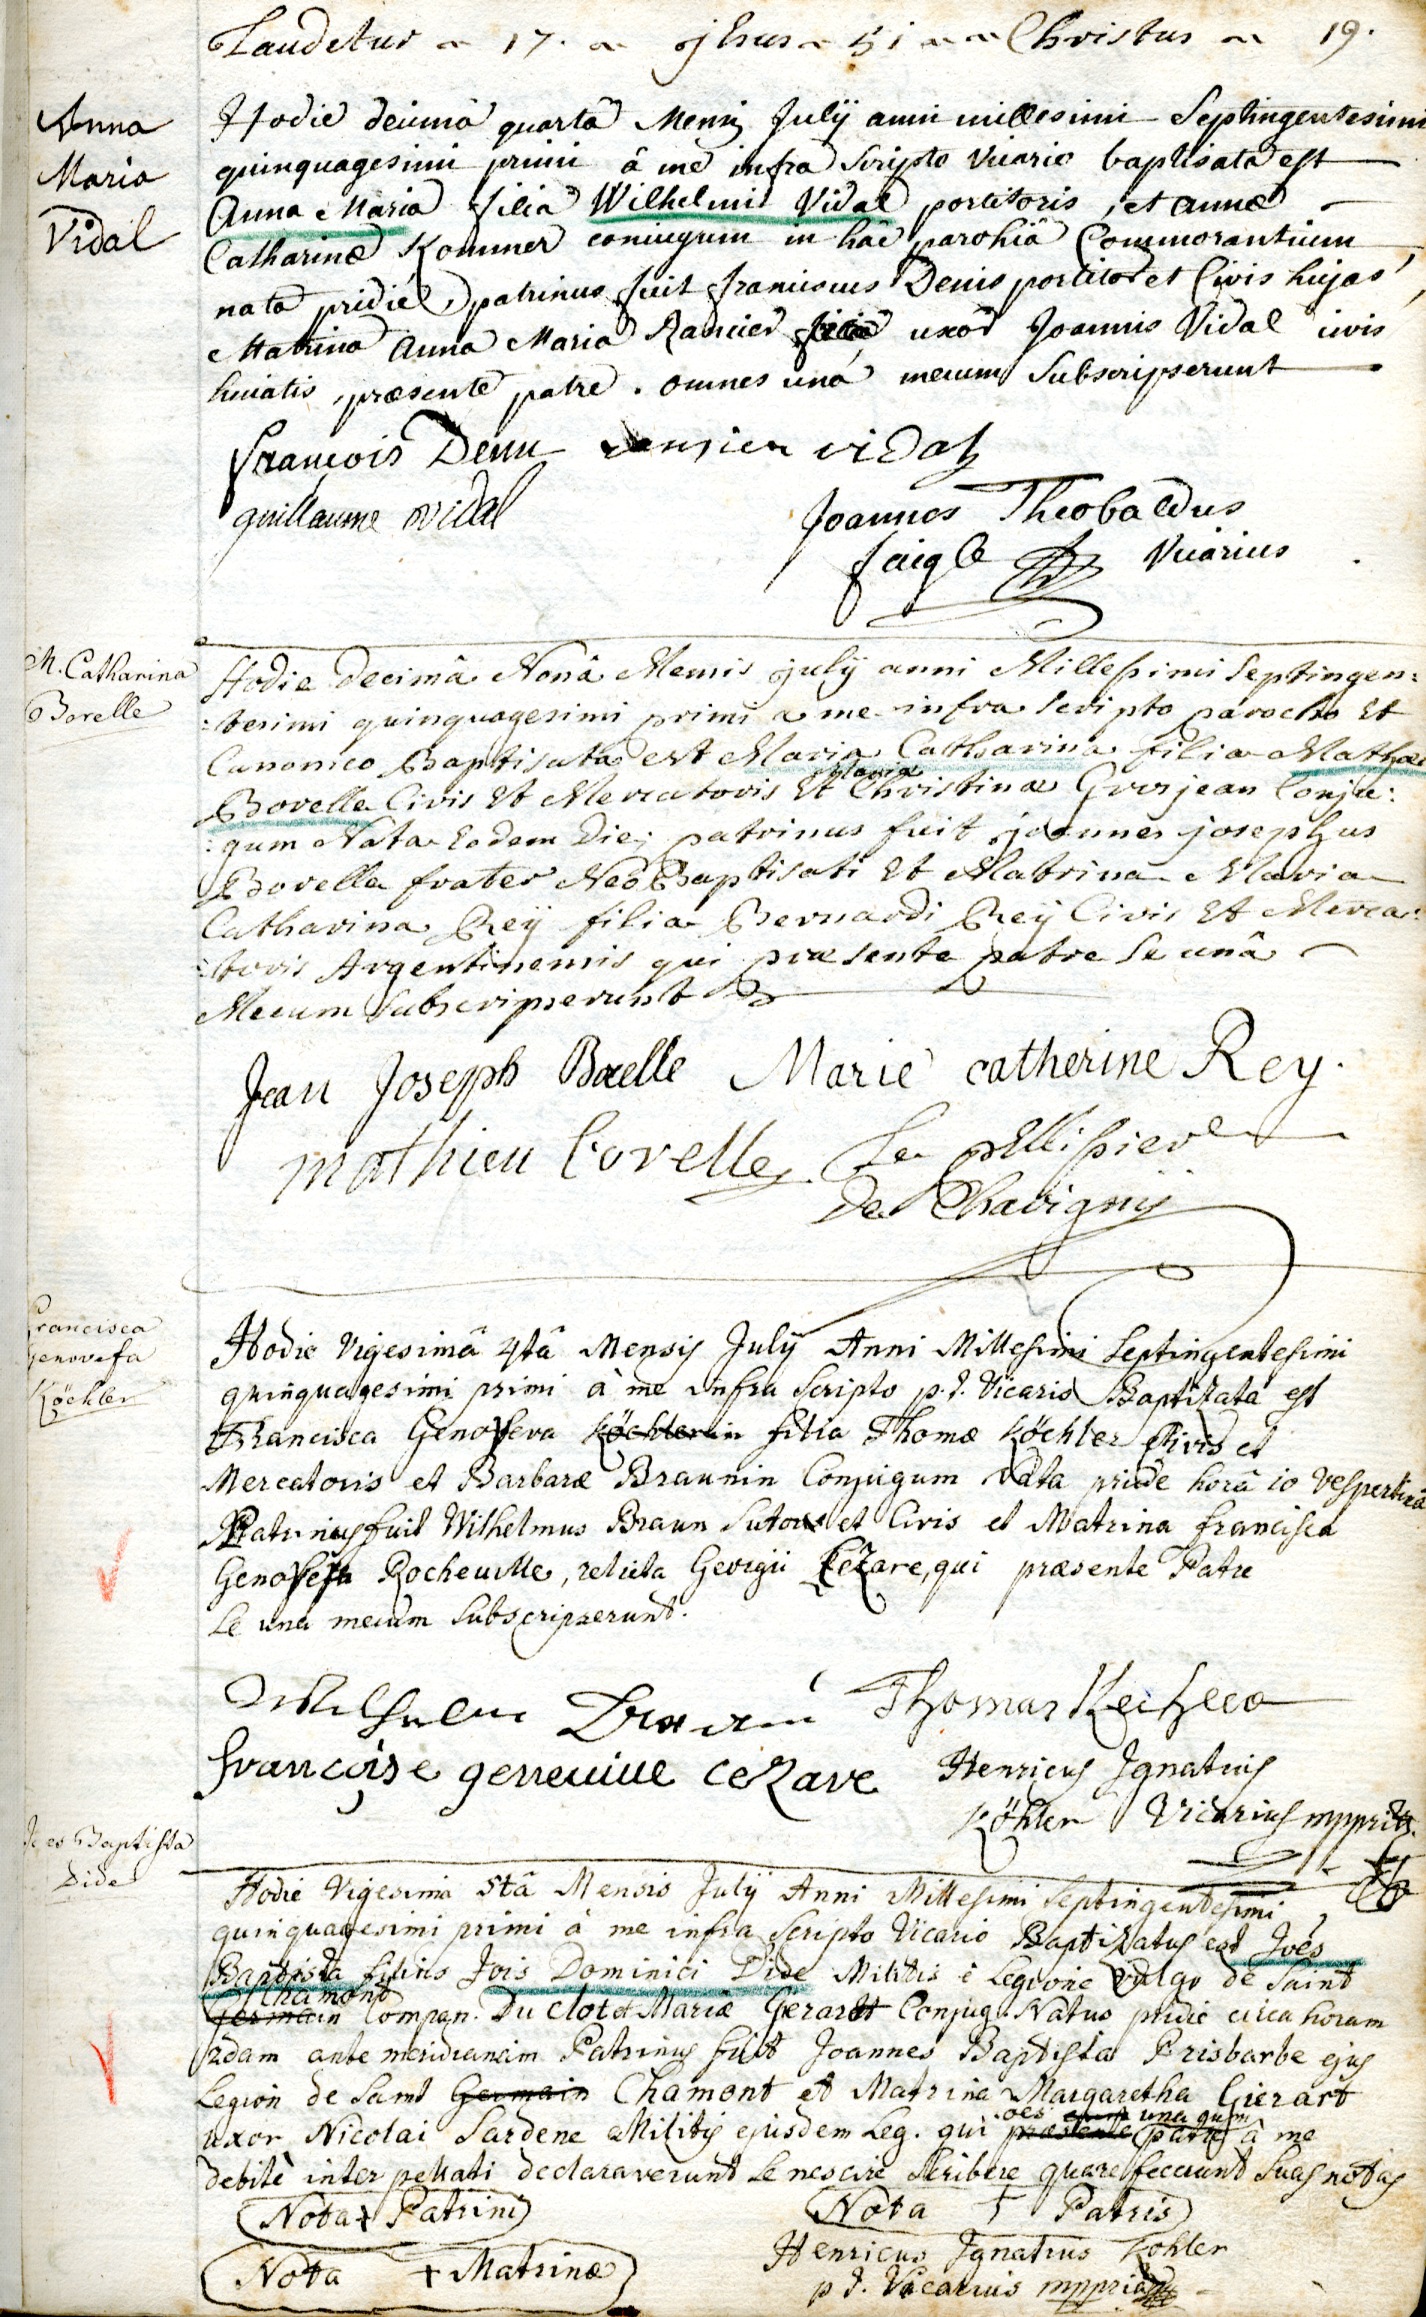 Laudetur 17. Jhus 51 Christus 19.
Anna
Maria
Vidal
Hodie decimâ quartâ Mensis Julÿ anni millesimi Septingentesimi
quinquagesimi primi â me infra Scripto Vicario baptisata est
Anna Maria filia Wilhelmi Vidal portitoris, et annæ
Catharinæ Kommer coniugum in hâc parohiâ Commorantium
nata pridie, patrinus fuit franciscus Denis portitor et Civis hujas,
Matrina Anna Maria Rancier uxor Joannis Vidal civis
huiatis, præsente patre. omnes unâ mecum Subscripserunt
françois Denu vidal
guillaume vidal
Joannes Theobaldus
faigle Vicarius
M. Catharina
Borelle
Hodie Decimâ Nonâ Mensis july anni Millesimi Septingen:
:tesimi quinquagesimi primi a me infra Scripto parocho Et
Canonico Baptisata est Maria Catharina filia Mathæi
Borelle Civis Et Mercatoris Et Mariæ Christinæ Grosjean Conju:
:gum Nata Eodem Die; patrinus fuit joannes josephus
Borelle frater Neo Baptisati Et Matrina Maria
Catharina Reÿ filia Bernardi Reÿ Civis Et Merca:
:toris Argentinensis qui præsente patre Se unâ
Mecum Subscripserunt
Jean Joseph Borelle Marie catherine Rey.
mathieu borelle Le pellissier
De Chavigny
Francisca
Genovefa
Köchler
Hodie Vigesimâ 4tâ Mensis Julÿ Anni Millesimi Septingentesimi
quinquagesimi primi â me infra Scripto p.t. Vicario Baptizata est
Francisca Genofeva Köchlerin filia Thomæ Köchler Civis et
Mercatoris et Barbaræ Braunin Conjugum Nata pridie horâ 10 Vespertinâ
Patrinus fuit Wilhelmus Braun Sutor et Civis et Matrina francisca
Genofefa Rocheville, relicta Georgii Cezare, qui præsente Patre
Se una mecum Subscripserunt.
Wilhelm Braun Thomas Kechler
françoise genneuiue ceZare Henricus Ignatius
Köhler Vicarius mppria.
Joes Baptista
Dide
Hodie Vigesima 5tâ Mensis Julÿ Anni Millesimi Septingentesimi
quinquagesimi primi â me infra Scripto Vicario Baptizatus est Joês
Baptista filius Jois Dominici Dide Militis è Legione vulgo de Saint
Chamont
Germain Compan. Du clot et Mariæ Gerardt Conjug. Natus pridie circa horam
2dam ante meridianam Patrinus fuit Joannes Baptista Prisbarbe ejus
Legion de Saint Germain Chamont et Matrina Margaretha Gierart
uxor Nicolai Sardene Militis ejusdem Leg. qui oes una cum præsente patre â me
debitè interpellati declaraverunt Se nescire Scribere quare fecerunt Suas notas
Nota + Patrini Nota + Patris
Nota + Matrinæ
Henricus Ignatius Kohler
p t. Vicarius mppria